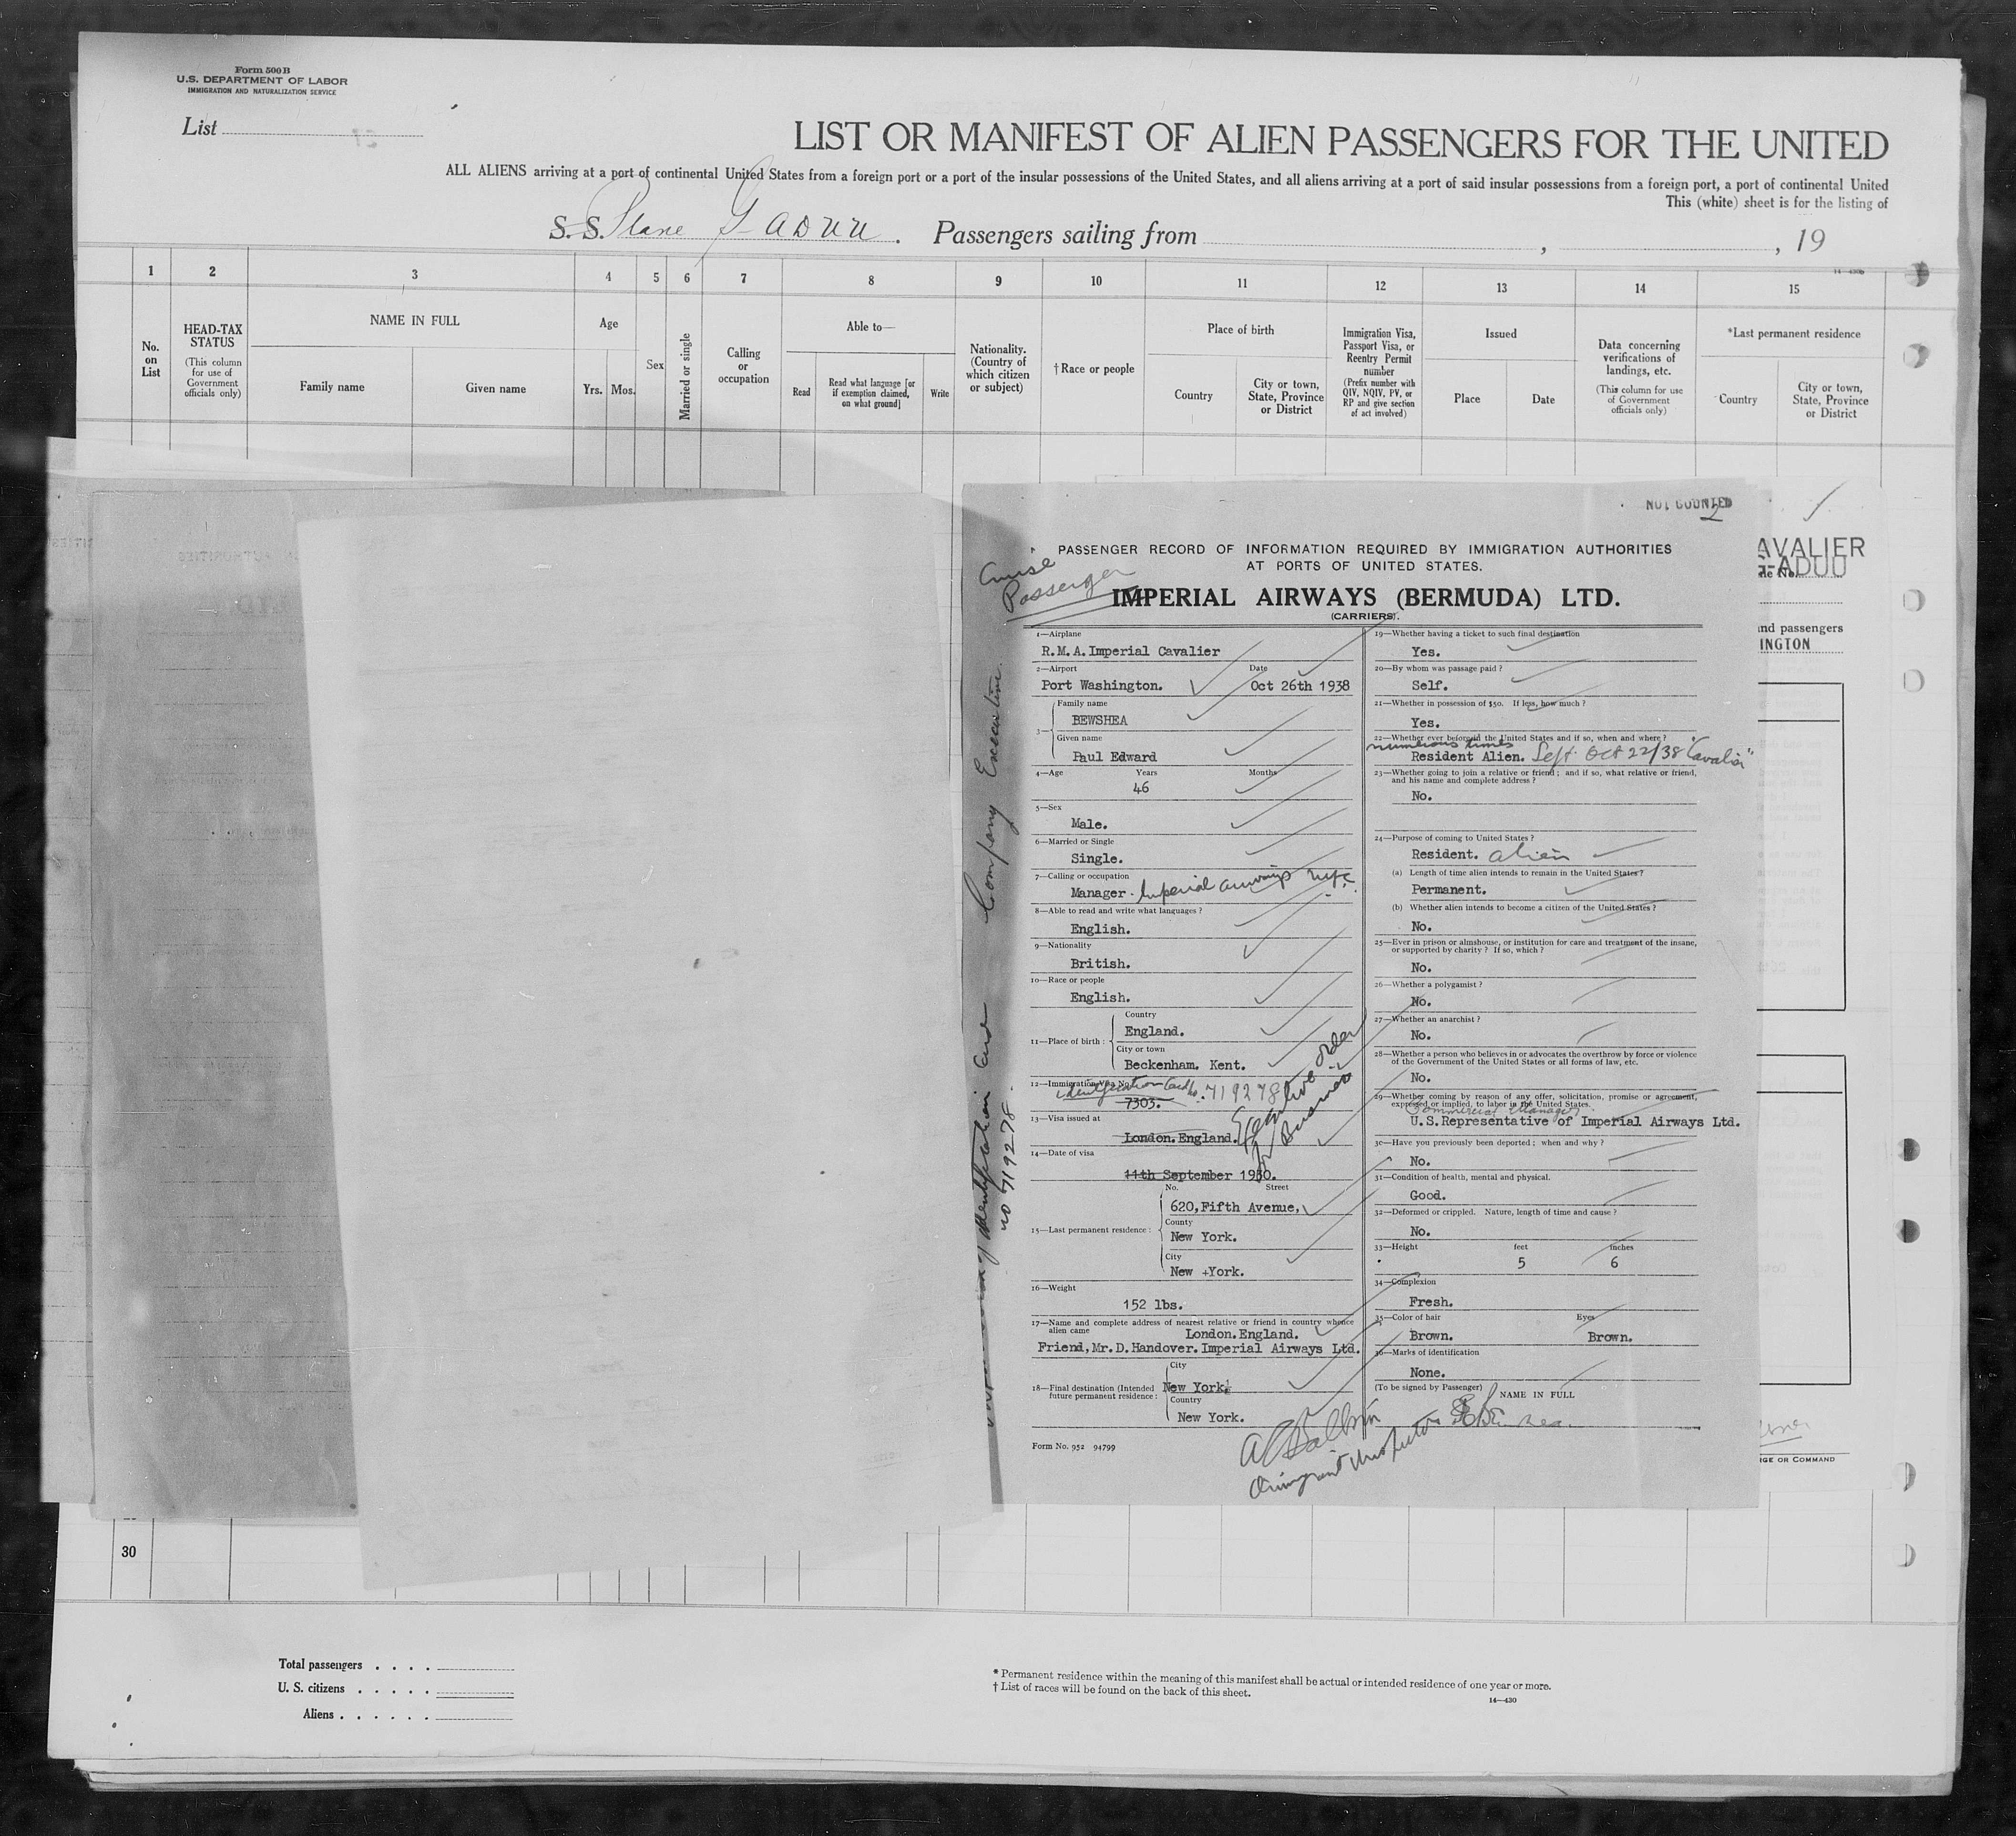 Form 500 B
U.S. DEPARTMENT OF LABOR
IMMIGRATION AND NATURALIZATION SERVICE
List
LIST OR MANIFEST OF ALIEN PASSENGERS FOR THE UNITED
ALL ALIENS arriving at a port of continental United States from a foreign port or a port of the insular possessions of the United States, and all aliens arriving at a port of said insular possessions from a foreign port, a port of continental United
This (white) sheet is for the listing of
S. S. Plane G-ADUU. Passengers sailing from , , 19
14-430b
1 2 3 4 5 6 7 8 9 10 11 12 13 14 15
No. on List
HEAD-TAX STATUS
(This column for use of Government officials only)
NAME IN FULL
Family name
Given name
Age
Yrs. Mos.
Sex
Married or single
Calling or occupation
Able to—
Read
Read what language [or if exemption claimed, on what ground]
Write
Nationality. (Country of which citizen or subject)
† Race or people
Place of birth
Country
City or town, State, Province or District
Immigration Visa, Passport Visa, or Reentry Permit number
(Prefix number with QIV, NQIV, PV, or RP and give section of act involved)
Issued
Place
Date
Data concerning verifications of landings, etc.
(This column for use of Government officials only)
*Last permanent residence
Country
City or town, State, Province or District
NOT COUNTED
2
PASSENGER RECORD OF INFORMATION REQUIRED BY IMMIGRATION AUTHORITIES
AT PORTS OF UNITED STATES.
Cruise
Passenger
IMPERIAL AIRWAYS (BERMUDA) LTD.
(CARRIERS).
1—Airplane
R.M.A. Imperial Cavalier
2—Airport Date
Port Washington. Oct 26th 1938
3— Family name
BEWSHEA
Given name
Paul Edward
4—Age Years Months
46
5—Sex
Male.
6—Married or Single
Single.
7—Calling or occupation
Manager. Imperial airways
8—Able to read and write what languages ?
English.
9—Nationality
British.
10—Race or people
English.
11—Place of birth : Country
England.
City or town
Beckenham. Kent.
12—Immigration Visa No.
Identification Card No. 719278
7303.
13—Visa issued at
London.England.
Executive order
Business
14—Date of visa
11th September 1930.
15—Last permanent residence : No. Street
620,Fifth Avenue,
County
New York.
City
New York.
16—Weight
152 lbs.
17—Name and complete address of nearest relative or friend in country whence alien came
London.England.
Friend,Mr.D.Handover. Imperial Airways Ltd.
18—Final destination (Intended future permanent residence : City
New York.
Country
New York.
Form No. 952 94799
19—Whether having a ticket to such final destination
Yes.
20—By whom was passage paid ?
Self.
21—Whether in possession of $50. If less, how much ?
Yes.
22—Whether ever before in the United States and if so, when and where ?
numerous times
Resident Alien. Sept. Oct 22/38 "Cavalier"
23—Whether going to join a relative or friend ; and if so, what relative or friend, and his name and complete address ?
No.
24—Purpose of coming to United States ?
Resident. alien
(a) Length of time alien intends to remain in the United States ?
Permanent.
(b) Whether alien intends to become a citizen of the United States ?
No.
25—Ever in prison or almshouse, or institution for care and treatment of the insane, or supported by charity ? If so, which ?
No.
26—Whether a polygamist ?
No.
27—Whether an anarchist ?
No.
28—Whether a person who believes in or advocates the overthrow by force or violence of the Government of the United States or all forms of law, etc.
No.
29—Whether coming by reason of any offer, solicitation, promise or agreement, expressed or implied, to labor in the United States.
Commercial Manager
U.S.Representative of Imperial Airways Ltd.
30—Have you previously been deported ; when and why ?
No.
31—Condition of health, mental and physical.
Good.
32—Deformed or crippled. Nature, length of time and cause ?
No.
33—Height feet inches
5 6
34—Complexion
Fresh.
35—Color of hair Eyes
Brown. Brown.
36—Marks of identification
None.
(To be signed by Passenger) NAME IN FULL
Immigrant Inspector
Company Executive
Identification Card
no 719278
AVALIER
-ADUU
nd passengers
INGTON
GE OR COMMAND
30
Total passengers
U. S. citizens
Aliens
* Permanent residence within the meaning of this manifest shall be actual or intended residence of one year or more.
† List of races will be found on the back of this sheet.
14—430